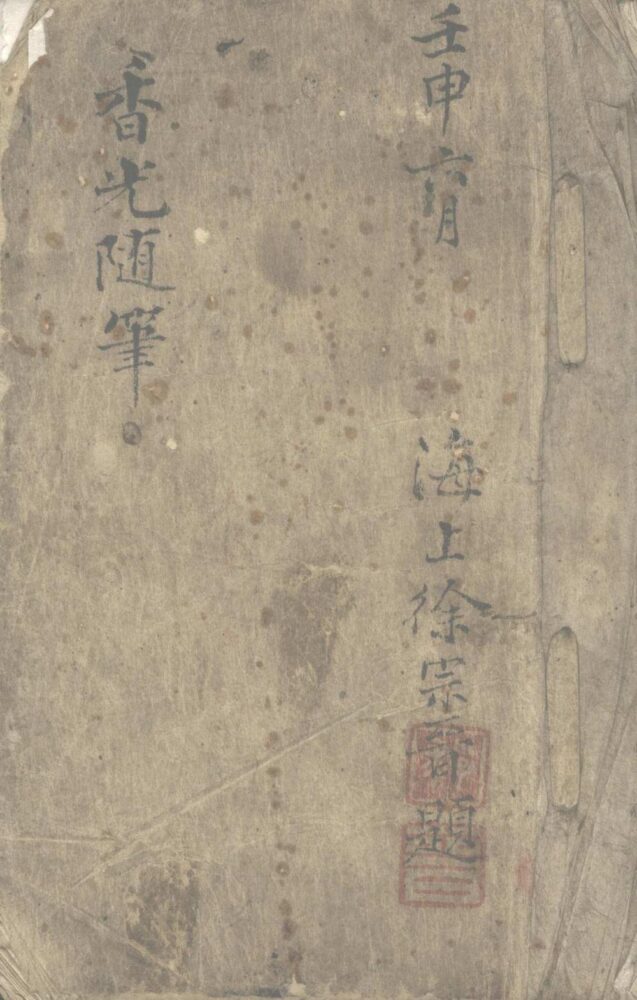 壬申六月
海上徐宗題
香光随筆